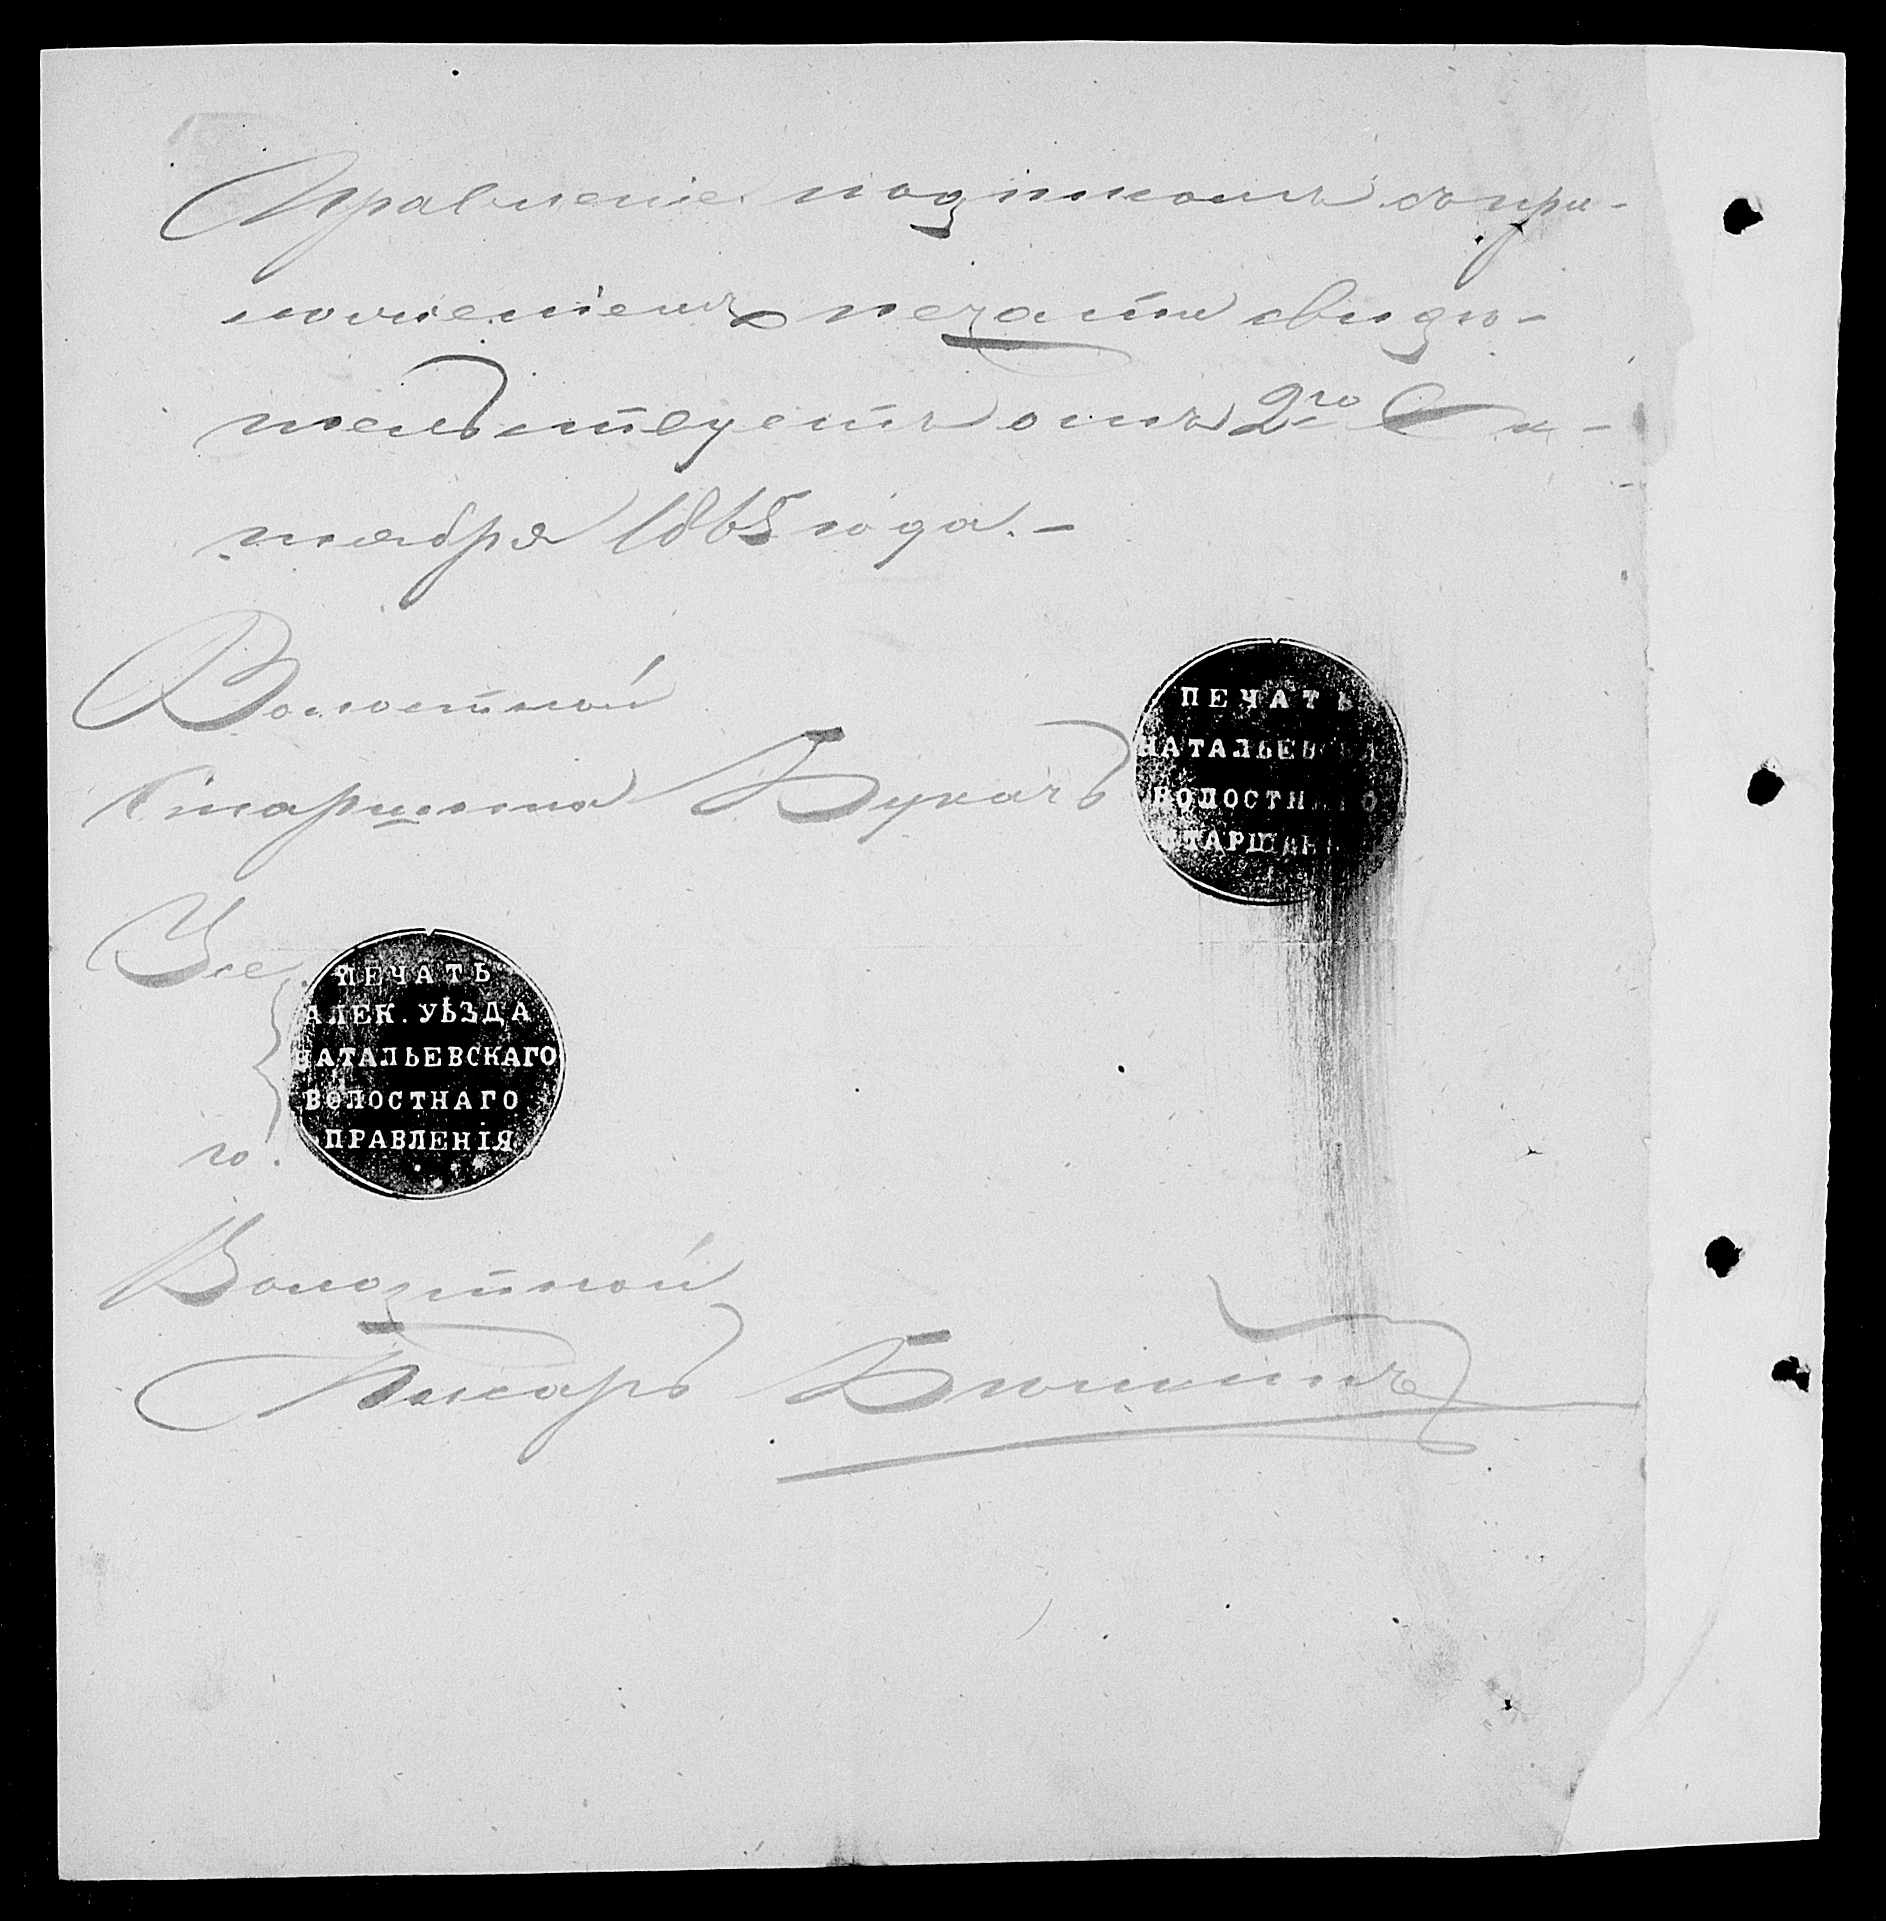 Правленіе подписомъ съ при-
ложеніемъ печати свидѣ-
тельствуетъ отъ 2го Сен-
тября 1865 года. -
Волостной
Старшина Букачъ
ПЕЧАТЬ
НАТАЛЬЕВСКА
ВОЛОСТНАГО
СТАРШИНЫ
ПЕЧАТЬ
АЛЕК. УѢЗДА
НАТАЛЬЕВСКАГО
ВОЛОСТНАГО
ПРАВЛЕНІЯ
го.
Волостной
Писарь